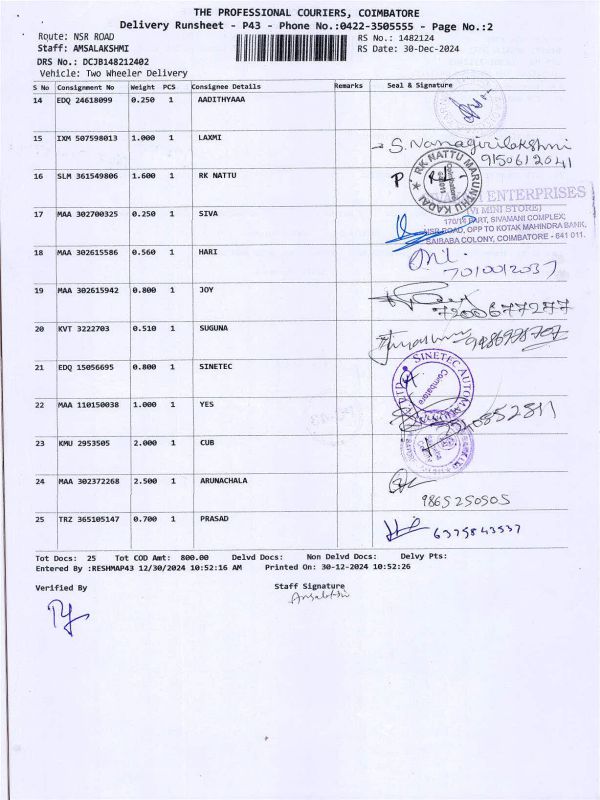 THE PROFESSIONAL COURIERS, COIMBATORE
Delivery Runsheet - P43 - Phone No.:0422-3505555 - Page No.:2
Route: NSR ROAD RS No.: 1482124
Staff: AMSALAKSHMI RS Date: 30-Dec-2024
DRS No.: DCJB148212402
Vehicle: Two Wheeler Delivery
S No Consignment No Weight PCS Consignee Details Remarks Seal & Signature
14 EDQ 24618099 0.250 1 AADITHYAAA
15 IXM 507598013 1.000 1 LAXMI
9150612041
16 SLM 361549806 1.600 1 RK NATTU
RK NATTU MARUNTHU KADAI
Coimbatore
ENTERPRISES
(VI MINI STORE)
17 MAA 302700325 0.250 1 SIVA
PART, SIVAMANI COMPLEX,
NSR ROAD, OPP TO KOTAK MAHINDRA BANK,
SAIBABA COLONY, COIMBATORE - 641 011.
18 MAA 302615586 0.560 1 HARI
7010012037
19 MAA 302615942 0.800 1 JOY
7200677277
20 KVT 3222703 0.510 1 SUGUNA
21 EDQ 15056695 0.800 1 SINETEC
SINETEC AUTOM
Coimbatore
22 MAA 110150038 1.000 1 YES
23 KMU 2953505 2.000 1 CUB
24 MAA 302372268 2.500 1 ARUNACHALA
9865250505
25 TRZ 365105147 0.700 1 PRASAD
6375843537
Tot Docs: 25 Tot COD Amt: 800.00 Delvd Docs: Non Delvd Docs: Delvy Pts:
Entered By :RESHMAP43 12/30/2024 10:52:16 AM Printed On: 30-12-2024 10:52:26
Verified By Staff Signature